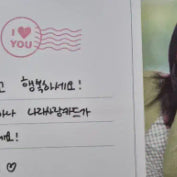 I ♥
YOU
고 행복하세요!
나 나라사랑카드가
세요!
♡